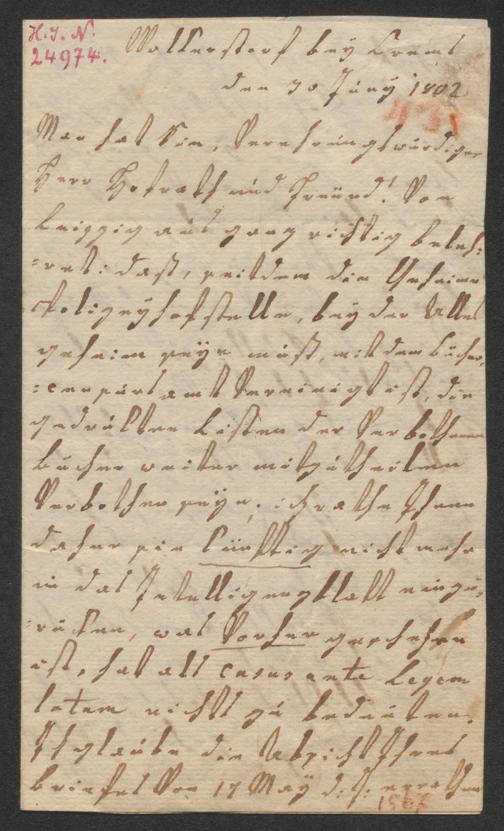 H. I. N.
24974.
Wolkerstorf bey Crems
den 30 Juny 1802
Man hat Sie, Verehrungswürdiger
Herr Hofrath und Freünd! Von
Leipzig aus ganz richtig beleh:
:ret: daß, seitdem die Geheime
Polizeyhofstelle, bey der Alles
geheim seyn muß, mit dem Bücher,
:censursamt Vereinigt ist, die
gedrukten Listen der Verbothenen
Bücher weiter mitzutheilen
Verbothen seye; ich rathe Ihnen
daher sie künftig nicht mehr
in das Intelligenzblatt einzu,
:rücken, was Vorher geschehen
ist, hat als casus ante Legem
latam nicht zu bedeuten.
Ich glaube die Absicht Ihres
briefes Von 17 May d. J. errathen
1567